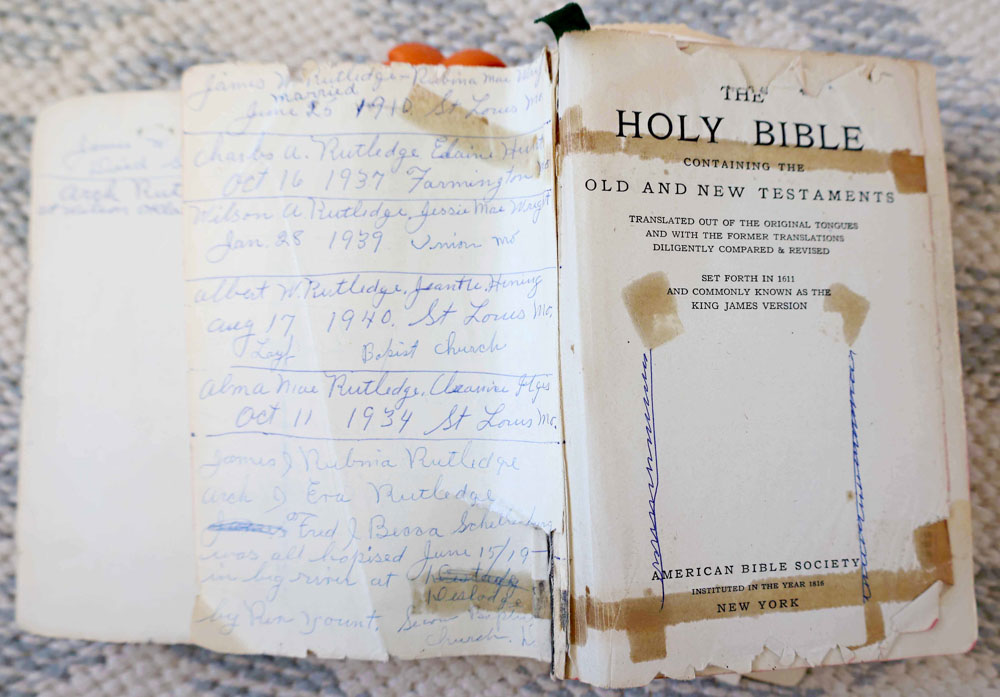 James W
Arch Rut
James W. Rutledge - Rubina Mae
married
June 25 1910. St Louis Mo
Charles A. Rutledge, Elaine
Oct 16 1937 Farmington Mo
Wilson A Rutledge, Jessie Mae Wright
Jan. 28 1939. Union Mo
Albert W. Rutledge, Hening
Aug 17 1940. St Louis Mo.
Bapist Church
Alma Mae Rutledge,
Oct 11 1934 St Louis Mo.
James & Rubnia Rutledge
Arch & Eva Rutledge
Fred & Bessa
was all bapised June 15/19
in big river at
Desloge
by Rev Yount.
Church.
THE
HOLY BIBLE
CONTAINING THE
OLD AND NEW TESTAMENTS
TRANSLATED OUT OF THE ORIGINAL TONGUES
AND WITH THE FORMER TRANSLATIONS
DILIGENTLY COMPARED & REVISED
SET FORTH IN 1611
AND COMMONLY KNOWN AS THE
KING JAMES VERSION
AMERICAN BIBLE SOCIETY
INSTITUTED IN THE YEAR 1816
NEW YORK